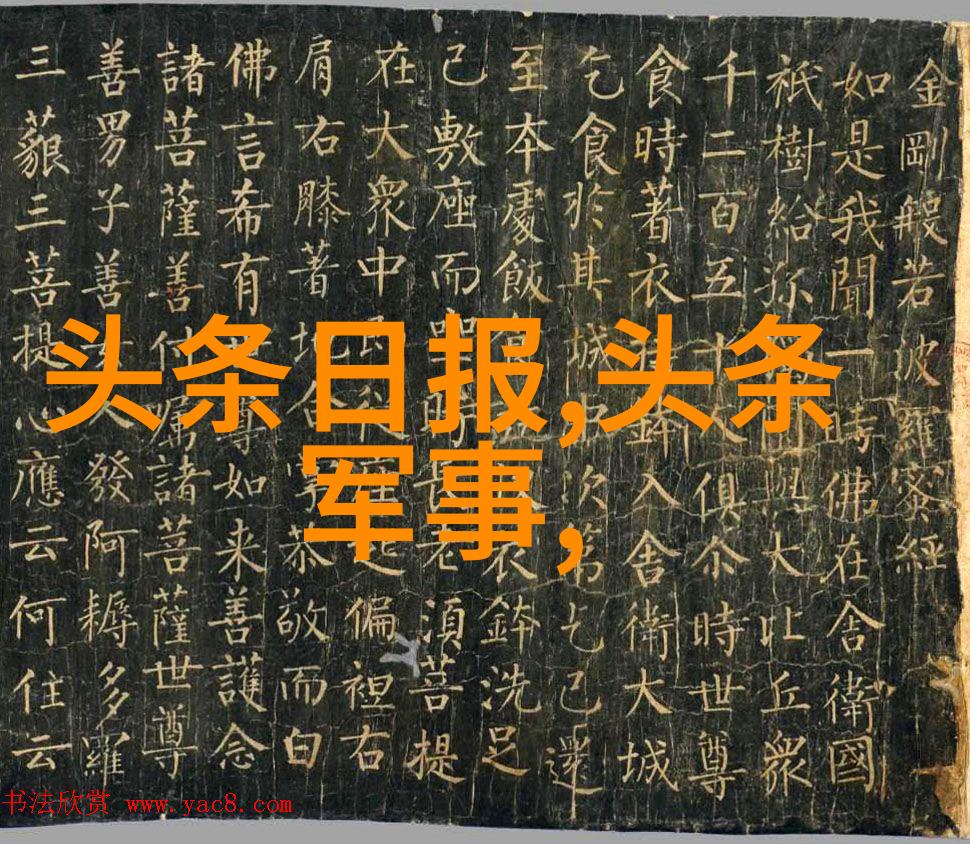 金剛般若波羅蜜經
如是我聞一時佛在舍衛國
祇樹給孤園與大比丘衆
千二百五十人俱尒時世尊
食時著衣持鉢入舍衛大城
乞食於其城中次第乞已還
至本處飯食衣鉢洗足
已敷座而坐時長老須菩提
在大衆中即從座起偏袒右
肩右膝著地合掌恭敬而白
佛言希有世尊如来善護念
諸菩薩善付嘱諸菩薩世尊
善男子善女人發阿耨多羅
三藐三菩提心應云何住云
头条日报,头条
军事,
书法欣赏 www.yac8.com